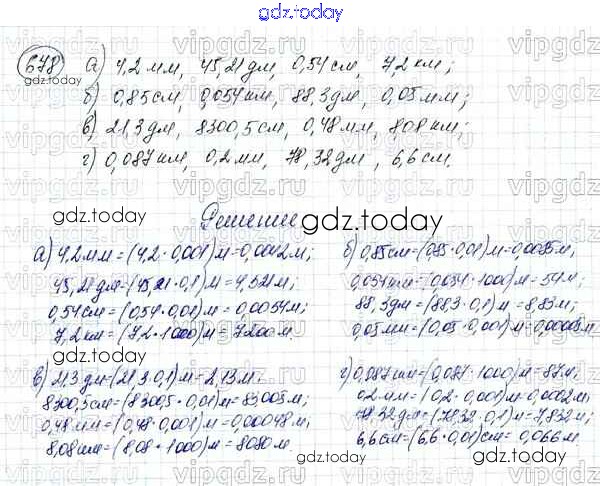 gdz.today
678 а) 4,2 мм, 45,21 дм, 0,54 см, 7,2 км;
gdz.today
б) 0,85 см, 0,054 км, 88,3 дм, 0,05 мм;
в) 21,3 дм, 8300,5 см, 0,48 мм, 8,08 км;
г) 0,087 км, 0,2 мм, 78,32 дм, 6,6 см.
Решение
gdz.today
gdz.today
а) 4,2 мм = (4,2 · 0,001) м = 0,0042 м;
45,21 дм = (45,21 · 0,1) м = 4,521 м;
0,54 см = (0,54 · 0,01) м = 0,0054 м;
7,2 км = (7,2 · 1000) м = 7200 м.
б) 0,85 см = (0,85 · 0,01) м = 0,0085 м;
0,054 км = (0,054 · 1000) м = 54 м;
88,3 дм = (88,3 · 0,1) м = 8,83 м;
0,05 мм = (0,05 · 0,001) м =
в) 21,3 дм = (21,3 · 0,1) м = 2,13 м;
8300,5 см = (8300,5 · 0,01) м = 83005 м;
0,48 мм = (0,48 · 0,001) м = 0,00048 м;
8,08 км = (8,08 · 1000) м = 8080 м.
г) 0,087 км = (0,087 · 1000) м = 87 м;
0,2 мм = (0,2 · 0,001) м = 0,0002 м;
78,32 дм = (78,32 · 0,1) м = 7,832 м;
6,6 см = (6,6 · 0,01) см = 0,066 м.
gdz.today
gdz.today